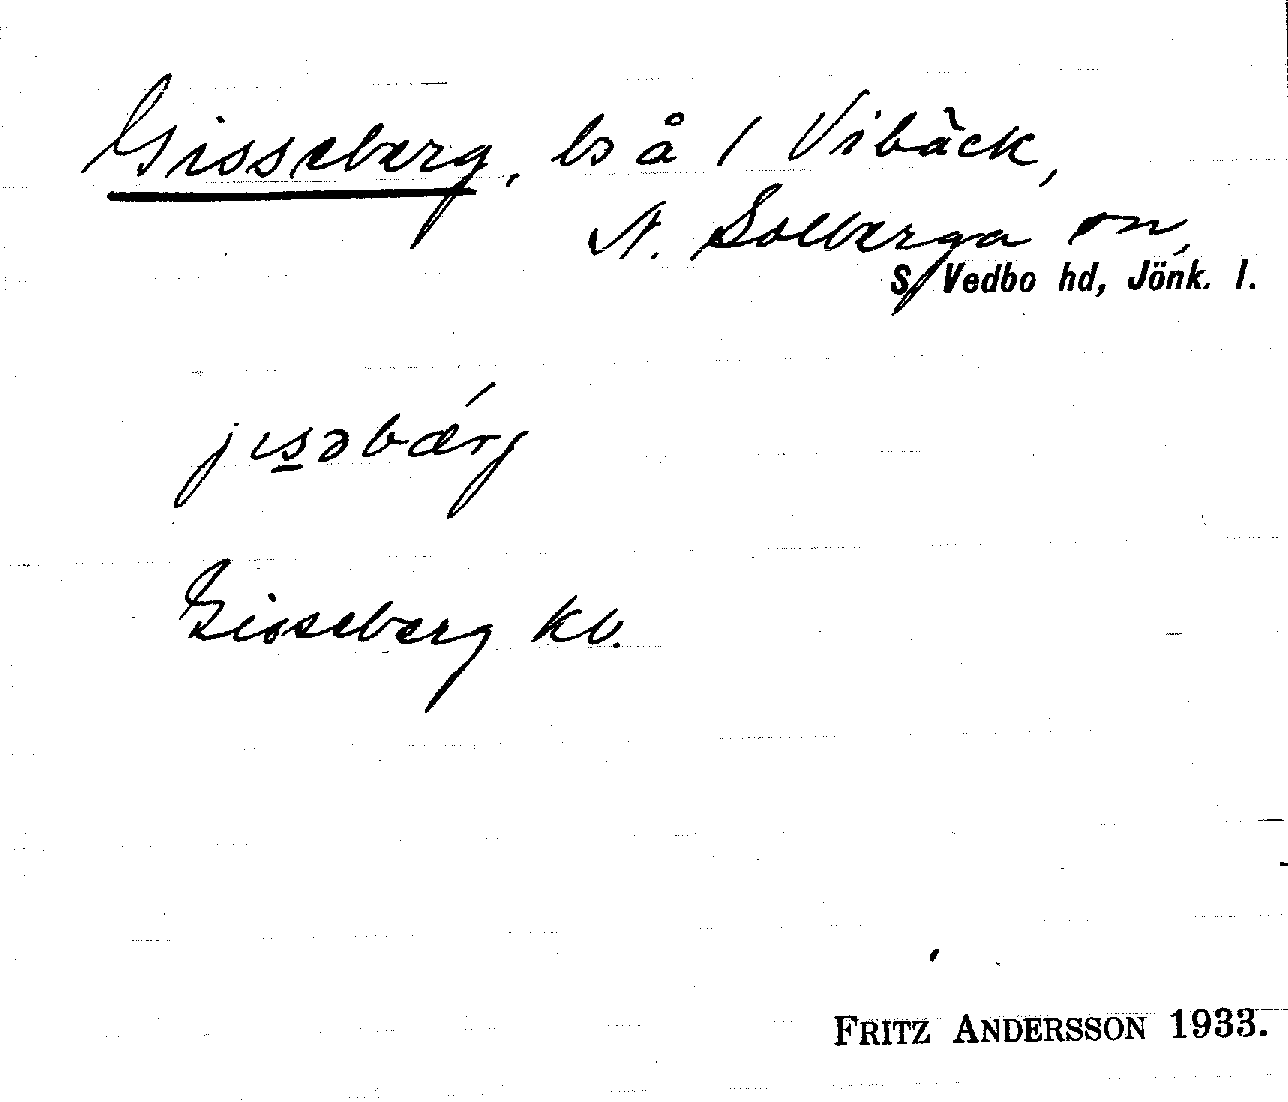 Gisseberg, ls å 1 Vibäck,
N. Solberga sn,
S Vedbo hd, Jönk. l.
jɩs̲əbærj́
Gisseberg kb.
FRITZ ANDERSSON 1933.